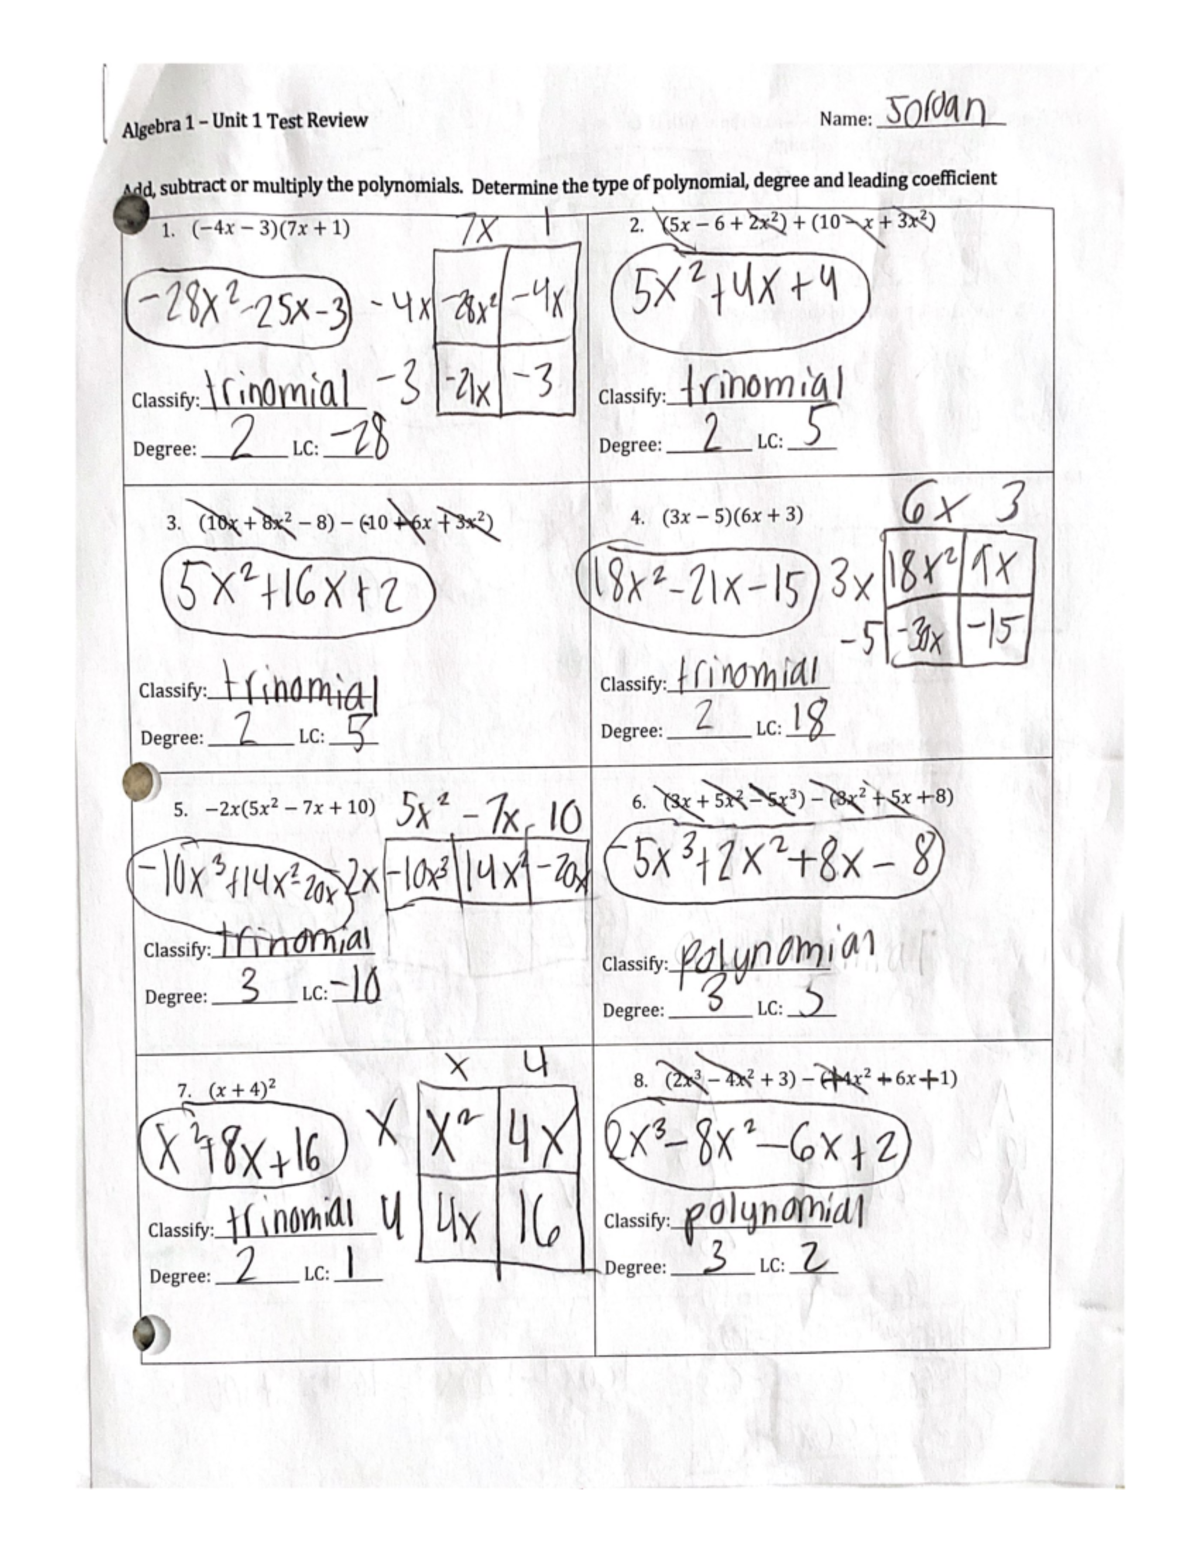 Algebra 1 – Unit 1 Test Review
Name: Jordan
Add, subtract or multiply the polynomials. Determine the type of polynomial, degree and leading coefficient
1. (−4x − 3)(7x + 1)
7x 1
-28x² -25x -3
-4x -28x² -4x
-3 -21x -3
Classify: trinomial
Degree: 2 LC: -28
2. (5x − 6 + 2x²) + (10 − x + 3x²)
5x² + 4x + 4
Classify: trinomial
Degree: 2 LC: 5
3. (10x + 8x² − 8) − (-10 + 6x + 3x²)
5x² + 16x + 2
Classify: trinomial
Degree: 2 LC: 5
4. (3x − 5)(6x + 3)
6x 3
18x² - 21x - 15
3x 18x² 9x
-5 -30x -15
Classify: trinomial
Degree: 2 LC: 18
5. −2x(5x² − 7x + 10)
5x² - 7x 10
-10x³ + 14x² - 20x
2x -10x³ 14x² -20x
Classify: trinomial
Degree: 3 LC: -10
6. (3x + 5x² − 5x³) − (3x² + 5x + 8)
-5x³ + 2x² + 8x - 8
Classify: polynomial
Degree: 3 LC: 5
7. (x + 4)²
x 4
x² + 8x + 16
x x² 4x
4 4x 16
Classify: trinomial
Degree: 2 LC: 1
8. (2x³ − 4x² + 3) − (4x² + 6x + 1)
2x³ - 8x² - 6x + 2
Classify: polynomial
Degree: 3 LC: 2